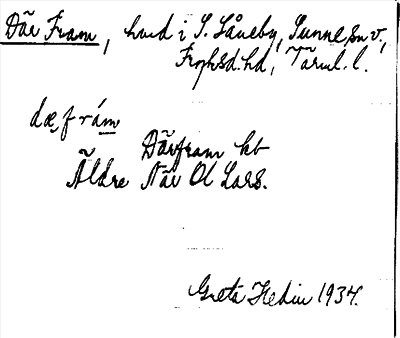 Där Fram, hmd i S. Låneby, Sunne sn v.,
Fryksd. hd, Värml. l.
dæ, f rám
Därfram kb
Äldre När Ol Lars.
Greta Hedin 1934.